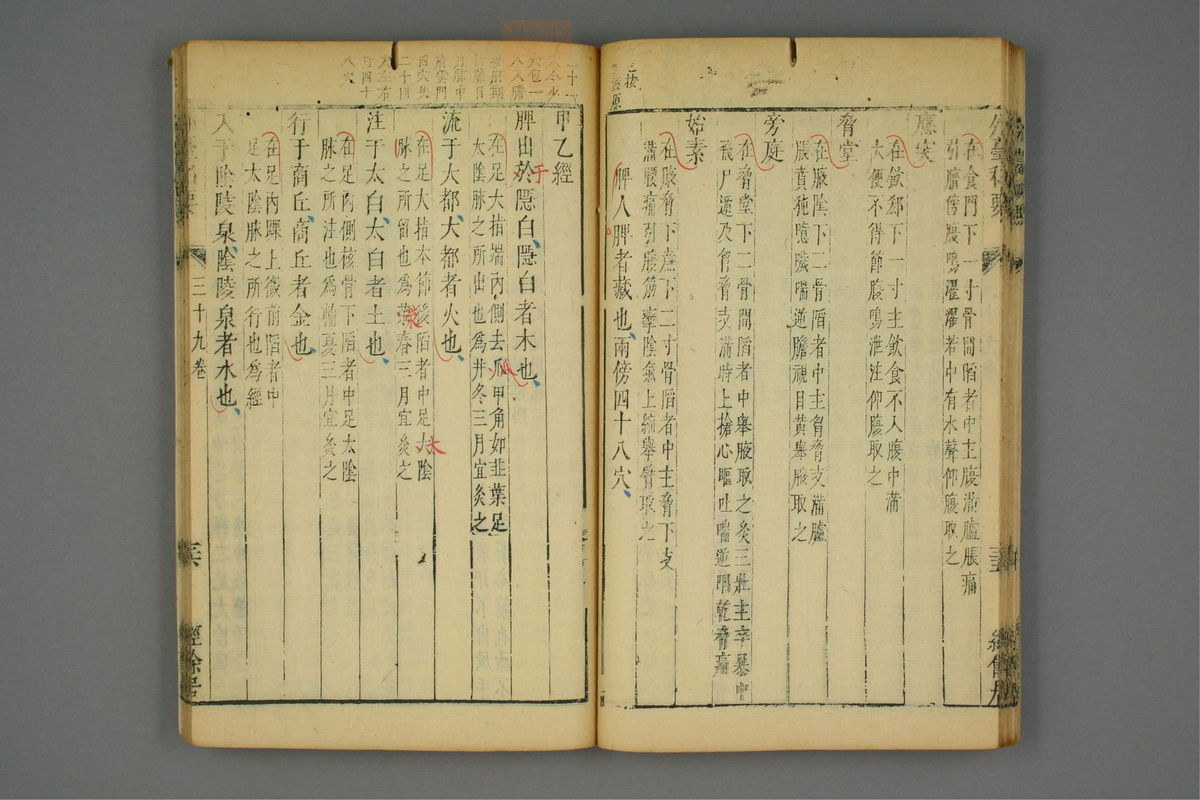 在食門下一寸骨間陷者中主腹滿臚脹痛
引臍傍腹鳴濯濯若中有水聲仰腹取之
應突
在飲郄下一寸主飲食不入腹中滿
大便不得節腹鳴泄注仰腹取之
脅堂
在腋陰下二骨陷者中主胷脅支滿臚
脹賁㹠噫噦喘逆瞻視目黃舉腋取之
旁庭
在脅堂下二骨間陷者中舉腋取之灸三壯主卒暴中
飛尸遁及胷脅支滿時上搶心嘔吐喘逆咽乾脅痛
始素
在腋脅下廉下二寸骨陷者中主脅下支
滿腰痛引腹筋攣陰氣上縮舉臂取之
脾人脾者藏也兩傍四十八穴
甲乙經
脾出於隱白隱白者木也
于
在足大指端內側去瓜甲角如韭葉足
太陰脉之所出也爲井冬三月宜灸之
流于大都大都者火也
在足大指本節後陷者中足大陰
脉之所留也爲滎春三月宜灸之
太
注于太白太白者土也
在足內側核骨下陷者中足太陰
脉之所注也爲輸夏三月宜灸之
行于商丘商丘者金也
在足內踝上微前陷者中
足太陰脉之所行也爲經
入于陰陵泉陰陵泉者水也
三十九卷
經餘居